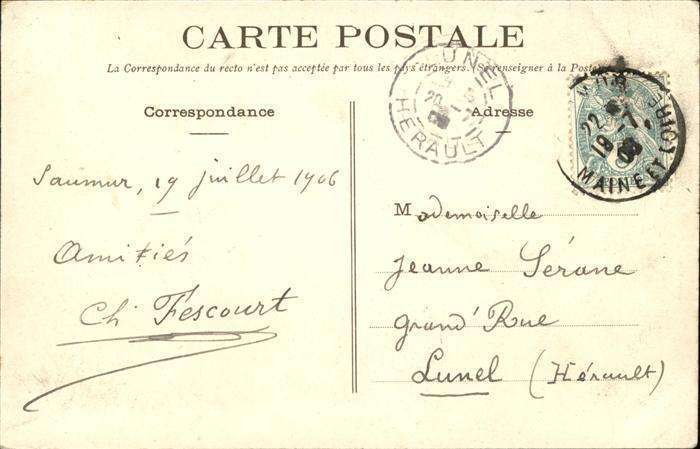 CARTE POSTALE
La Correspondance du recto n'est pas acceptée par tous les pays étrangers. (Se renseigner à la Poste
Correspondance
Adresse
LUNEL
HERAULT
MAINE ET LOIRE
Saumur, 19 juillet 1906
Amitiés
Ch. Fescourt
Mademoiselle
Jeanne Sérane
Grand' Rue
Lunel (Hérault)